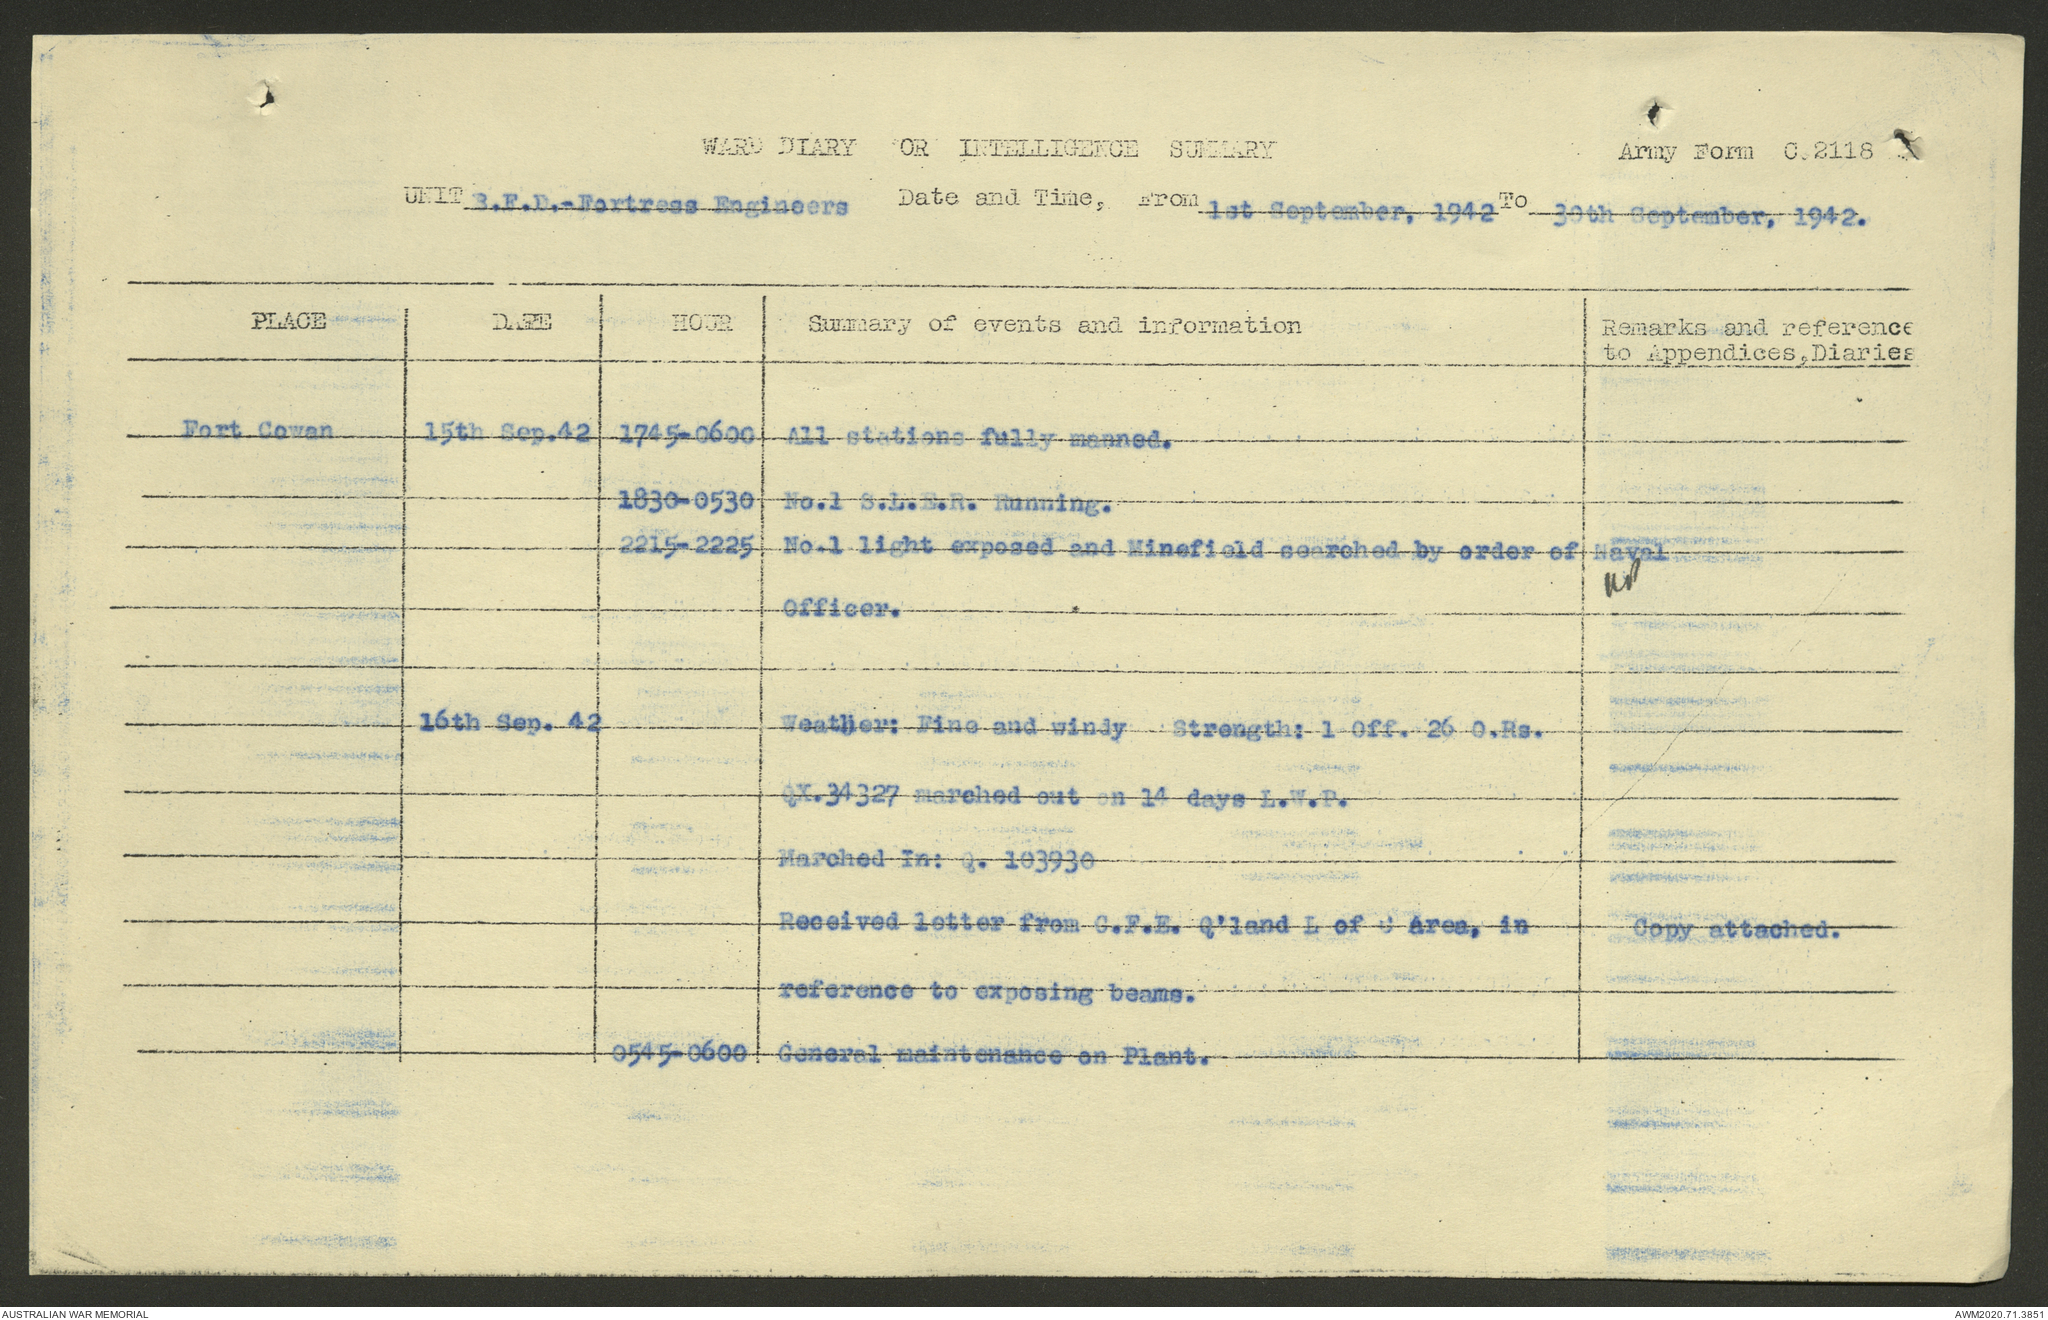 WARD DIARY OR INTELLIGENCE SUMMARY Army Form C.2118
UNIT B.F.D.-Fortress Engineers Date and Time, From 1st September, 1942 To 30th September, 1942.
PLACE DATE HOUR Summary of events and information Remarks and reference
to Appendices,Diaries
Fort Cowan 15th Sep.42 1745-0600 All stations fully manned.
1830-0530 No.1 S.L.E.R. Running.
2215-2225 No.1 light exposed and Minefield searched by order of Naval
Officer.
16th Sep. 42 Weather: Fine and windy Strength: 1 Off. 26 O.Rs.
QX.34327 marched out on 14 days L.W.P.
Marched In: Q. 103930
Received letter from C.F.E. Q'land L of C Area, in Copy attached.
reference to exposing beams.
0545-0600 General maintenance on Plant.
AUSTRALIAN WAR MEMORIAL AWM2020.71.3851